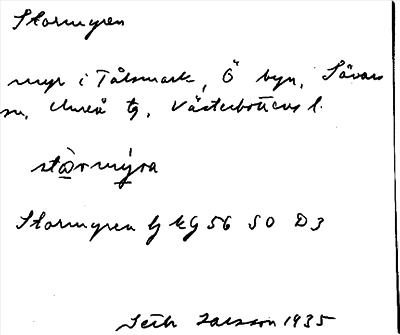 Stormyren
myr i Tålsmark, Ö byn, Sävars
sn, Umeå tg, Västerbottens l.
stormýra
Stormyren lg kg 56 S O D3
Seth Larsson 1935